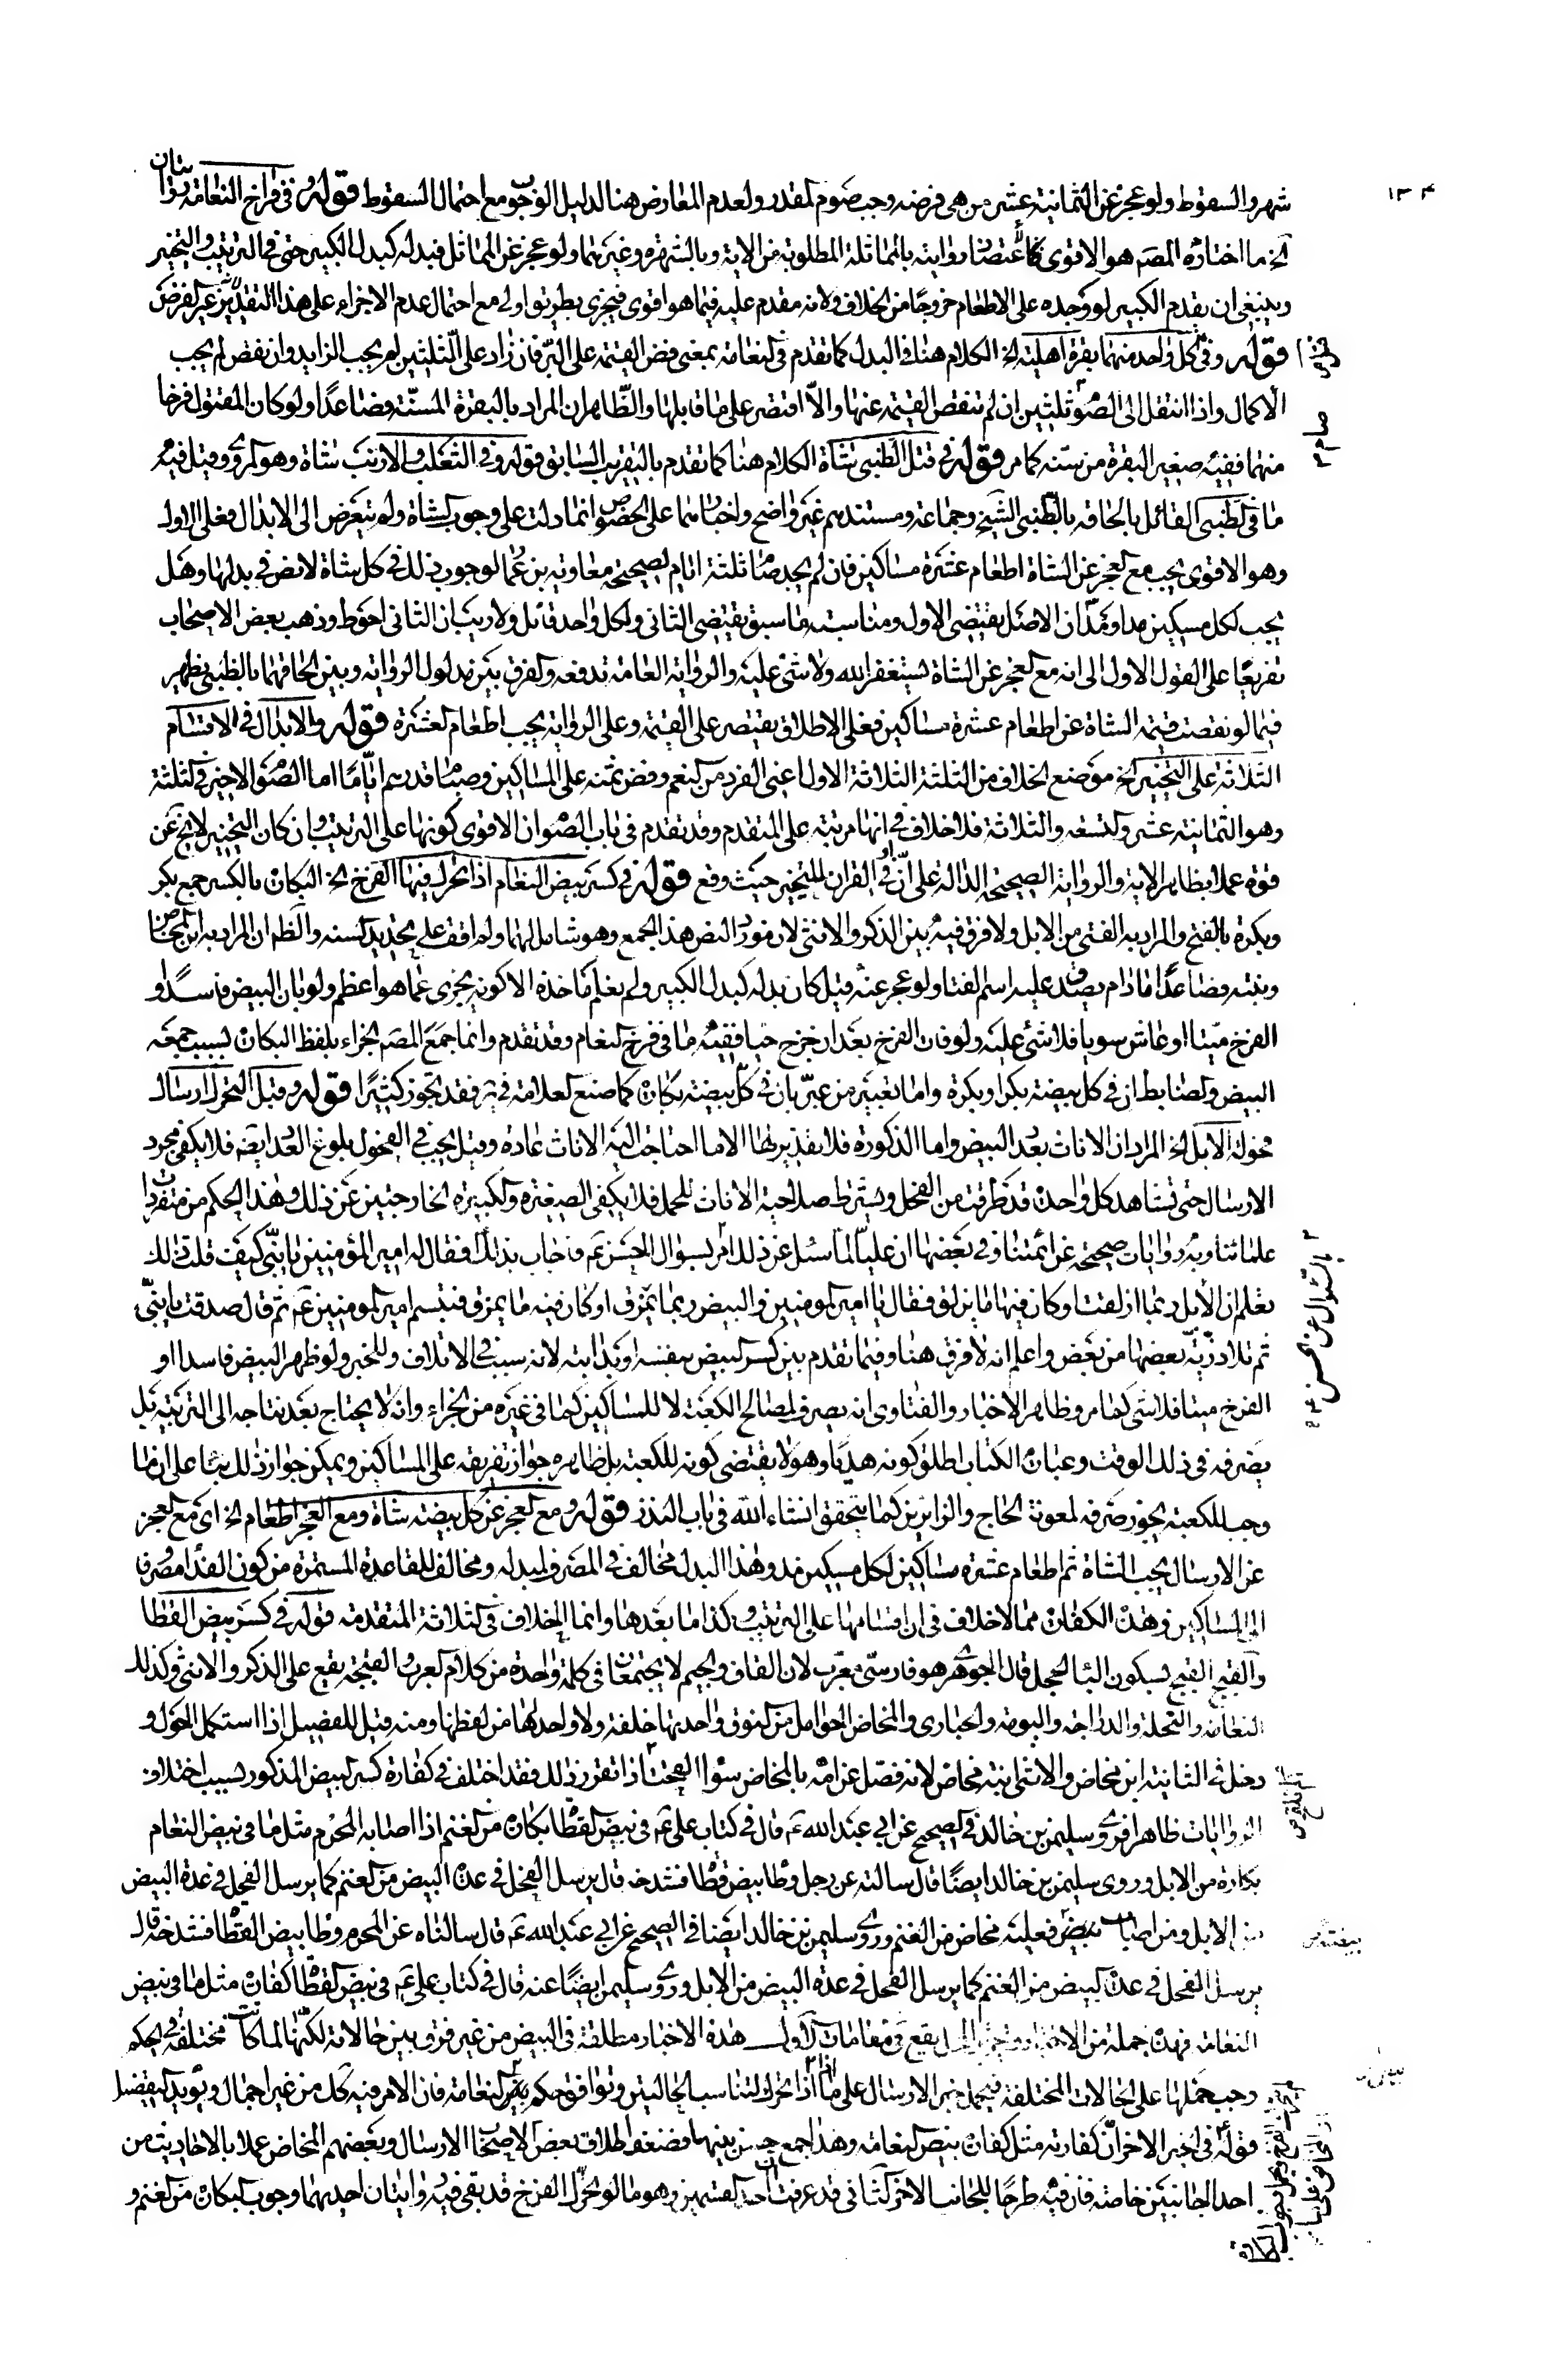 ١٣٤
شهر والسقوط ولو عجز عن الثمانية عشر من هي فرضه وجب صوم المقدور ولعدم المعارض هنا لدليل الوجوب مع احتمال السقوط قوله وفي فراخ النعامة روايتان
الخ ما اختاره المصـ هو الاقوى لاعتضاد روايته بالمماثلة المطلوبة من الاية وبالشهرة وغيرهما ولو عجز عن المماثل فبدله كبدل الكبير حتى في الترتيب والتخيير
وينبغي ان يقدم الكبير لو وجده على الاطعام خروجا من الخلاف ولانه مقدم عليه فيما هو اقوى فيجزى بطريق اولى مع احتمال عدم الاجزاء على هذا التقدير
قوله وفي كل واحد منهما بقرة اهلية الخ الكلام هنا في البدل كما تقدم في النعامة بمعنى فض القيمة على البر فان زاد على الثلثين لم يجب الزايد وان نقص لم يجب
الاكمال واذا انتقل الى الصوم ثلثين ان لم تنقص القيمة عنها والا اقتصر على ما قابلها والظاهر ان المراد بالبقرة المسنة فصاعدا ولو كان المقتول فرخا
منهما ففيه صغير البقرة من سنه كما مر قوله في قتل الظبي شاة الكلام هنا كما تقدم بالتقريب السابق قوله وفي الثعلب والارنب شاة وهو المروي وقيل فيه
ما في الظبي القائل بالحاقه بالظبي الشيخ وجماعة ومستندهم غير واضح واخبارهما على الخصوص انما دلت على وجوب الشاة ولم تتعرض الى الابدال فعلى الاول
وهو الاقوى يجب مع العجز عن الشاة اطعام عشرة مساكين فان لم يجد صام ثلثة ايام لصحيحة معاوية بن عمار الوجوب ذلك في كل شاة لا نص في بدلها وهل
يجب لكل مسكين مد او مدان الاصل يقتضي الاول ومناسبة ما سبق يقتضي الثاني ولكل واحد قائل ولا ريب ان الثاني احوط وذهب بعض الاصحاب
تفريعا على القول الاول الى انه مع العجز عن الشاة يستغفر الله ولا شئ عليه والرواية العامة تدفعه والفرق بين مدلول الرواية وبين الحاقهما بالظبي يظهر
فيما لو نقصت قيمة الشاة عن اطعام عشرة مساكين فعلى الاطلاق يقتصر على القيمة وعلى الرواية يجب اطعام العشرة قوله والابدال في الاقسام
الثلاثة على التخيير الخ موضع الخلاف من الثلثة الثلاثة الاول اعني الفرد من النعم وفض ثمنه على المساكين وصيام قدرهم اياما اما الصوم الاخير في الثلثة
وهو الثمانية عشر والتسعة والثلاثة فلا خلاف في انها مرتبة على المتقدم وقد تقدم في باب الصوم ان الاقوى كونها على الترتيب وان كان التخيير لا يخ عن
قوة عملا بظاهر الاية والرواية الصحيحة الدالة على ان او في القران للتخيير حيث وقع قوله في كسر بيض النعام اذا تحرك فيها الفرخ الخ البكارة بالكسر جمع بكر
وبكرة بالفتح والمراد به الفتى من الابل ولا فرق فيه بين الذكر والانثى لان مورد النص هذا الجمع وهو شامل لهما ولم اقف على تحديد لسنه والظ ان المراد به ابن المخاض
وبنته فصاعدا ما دام يصدق عليه اسم الفتا ولو عجز عنه قيل كان بدله كبدل الكبير ولم يعلم ماخذه الا كونه يجزى عما هو اعظم ولو بان البيض فاسدا و
الفرخ ميتا او عاش سويا فلا شئ عليه ولو فات الفرخ بعد ان خرج حيا ففيه ما في فرخ النعام وقد تقدم وانما جمع المصـ الجزاء بلفظ البكارة بسبب جمعه
البيض والضابط ان في كل بيضة بكرا وبكرة واما تعبير من عبر بان في كل بيضة بكارة كما صنع العلامة في ير فقد تجوز كثيرا قوله وقبل التحرك ارسال
فحولة الابل الخ المراد ان الاناث بعدد البيض واما الذكورة فلا تقدير لها الا ما احتاجت اليه الاناث عادة وقيل يجب في الفحول بلوغ العدد ايضه فلا يكفي مجرد
الارسال حتى تشاهد كل واحدة قد طرقت من الفحل ويشترط صلاحية الاناث للحمل فلا يكفي الصغيرة والكبيرة الخارجتين عن ذلك وهذا الحكم من متفردات
علمائنا وبه روايات صحيحة عن ائمتنا وفي بعضها ان عليا لما سئل عن ذلك امر بسؤال الحسن عم فاجاب بذلك فقال له امير المؤمنين يا بني كيف قلت ذلك
تعلم ان الابل ربما ازلقت او كان فيها ما يزلق فقال يا امير المومنين والبيض ربما يمرق او كان فيه ما يمرق فتبسم امير المومنين عم ثم قال صدقت يا بني
ثم تلا ذرية بعضها من بعض واعلم انه لا فرق هنا وفيما تقدم بين كسر البيض بنفسه او بدابته لانه سبب في الاتلاف وللخبر ولو ظهر البيض فاسدا او
الفرخ ميتا فلا شئ كما مر وظاهر الاخبار والفتاوى انه يصرف لمصالح الكعبة لا للمساكين كما في غيره من الجزاء وانه لا يحتاج بعد نتاجه الى التربية بل
يصرفه في ذلك الوقت وعبارة الكتاب اطلق كونه هديا وهو لا يقتضي كونه للكعبة بل ظاهره جواز تفريقه على المساكين ويمكن جواز ذلك بناء على ان ما
وجب للكعبة يجوز صرفه لمعونة الحاج والزائرين كما يتحقق انشاء الله في باب النذر قوله ومع العجز عن كل بيضة شاة ومع العجز اطعام الخ اي مع العجز
عن الارسال يجب الشاة ثم اطعام عشرة مساكين لكل مسكين مد وهذا البدل مخالف في المصرف لمبدله ومخالف للقاعدة المستمرة من كون الفداء مصروفا
الى المساكين وهذه الكفارة مما لا خلاف في ان اقسامها على الترتيب وكذا ما بعدها وانما الخلاف في الثلاثة المتقدمة قوله في كسر بيض القطا
والقبج القبج بسكون الباء الحجل قال الجوهري هو فارسي معرب لان القاف والجيم لا يجتمعان في كلمة واحدة من كلام العرب والقبجة يقع على الذكر والانثى وكذلك
النعامة والنحلة والدراجة والبومة والحبارى والمخاض الحوامل من النوق واحدتها خلفة ولا واحد لها من لفظها ومنه قيل للفصيل اذا استكمل الحول و
دخل في الثانية ابن مخاض والانثى ابنة مخاض لانه فصل عن امه بالمخاض سواء لقحت اذا تقرر ذلك فقد اختلف في كفارة كسر البيض المذكور بسبب اختلاف
الروايات ظاهرا فروى سليمن بن خالد في الصحيح عن ابي عبد الله عم قال في كتاب علي عم في بيض القطا بكارة من الغنم اذا اصابه المحرم مثل ما في بيض النعام
بكارة من الابل وروى سليمن بن خالد ايضا قال سالته عن رجل وطا بيض قطا فشدخه قال يرسل الفحل في عدة البيض من الغنم كما يرسل الفحل في عدة البيض
من الابل ومن اصاب بيض فعليه مخاض من الغنم وروى سليمن بن خالد ايضا في الصحيح عن ابي عبد الله عم قال سالناه عن المحرم وطا بيض القطا فشدخه قال
يرسل الفحل في عدة البيض من الغنم كما يرسل الفحل في عدة البيض من الابل وروى سليمن ايضا عنه قال في كتاب علي عم في بيض القطا كفارة مثل ما في بيض
النعامة فهذه جملة من الاخبار يقع في مقامات الاول هذه الاخبار مطلقة في البيض من غير فرق بين حالاته لكنها لما كانت مختلفة في الحكم
وجب حملها على الحالات المختلفة فيحمل خبر الارسال على ما اذا تحرك لتناسب الحالتين وتوافق حكم بيض النعامة فان الامر فيه كل من غير اجمال ويؤيد التفصيل
قوله في الخبر الاخر ان كفارته مثل كفارة بيض النعامة وهذا جمع حسن بينها فضعف اطلاق بعض الاصحاب الارسال وبعضهم المخاض عملا بالاحاديث من
احد الجانبين خاصة فان فيه طرحا للجانب الاخر الثاني قد عرفت احد القسمين وهو ما لو تحرك الفرخ قد بقي فيه روايتان احديهما وجوب البكارة من الغنم و
بالسؤال عن الحسن
بيضة